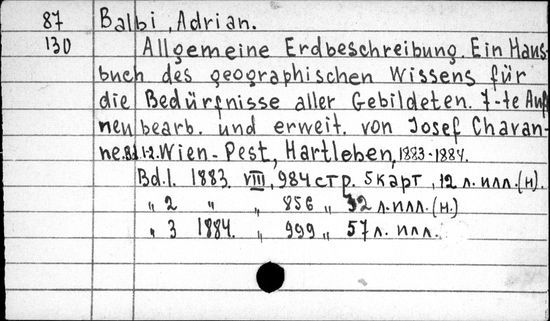 87 Balbi, Adrian.
130 Allgemeine Erdbeschreibung. Ein Haus-
buch des geographischen Wissens für
die Bedürfnisse aller Gebildeten. 7-te Auf
neu bearb. und erweit. von Josef Chavan-
ne. Bd. 1-2. Wien-Pest, Hartleben, 1883-1884.
Bd. 1. 1883. VIII, 984 стр. 5 карт, 12 л. илл. (н).
" 2 " " 856 " 32 л. илл. (н.)
" 3 1884. " 999 " 57 л. илл.